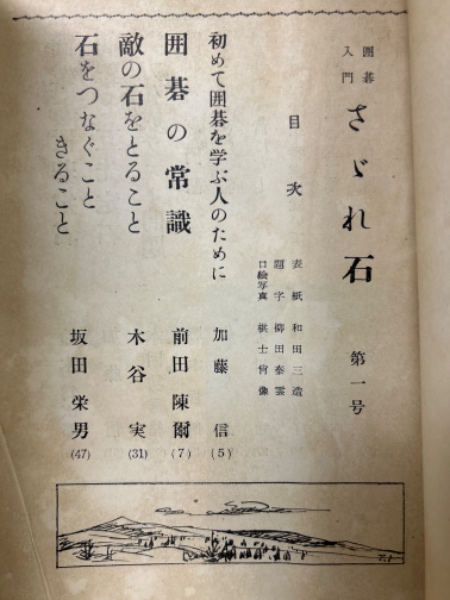 囲碁入門 さゞれ石 第一号
目次
表紙 和田三造
題字 柳田泰雲
口絵写真 棋士肖像
初めて囲碁を学ぶ人のために 加藤信 (5)
囲碁の常識 前田陳爾 (7)
敵の石をとること 木谷実 (31)
石をつなぐこと
きること 坂田栄男 (47)